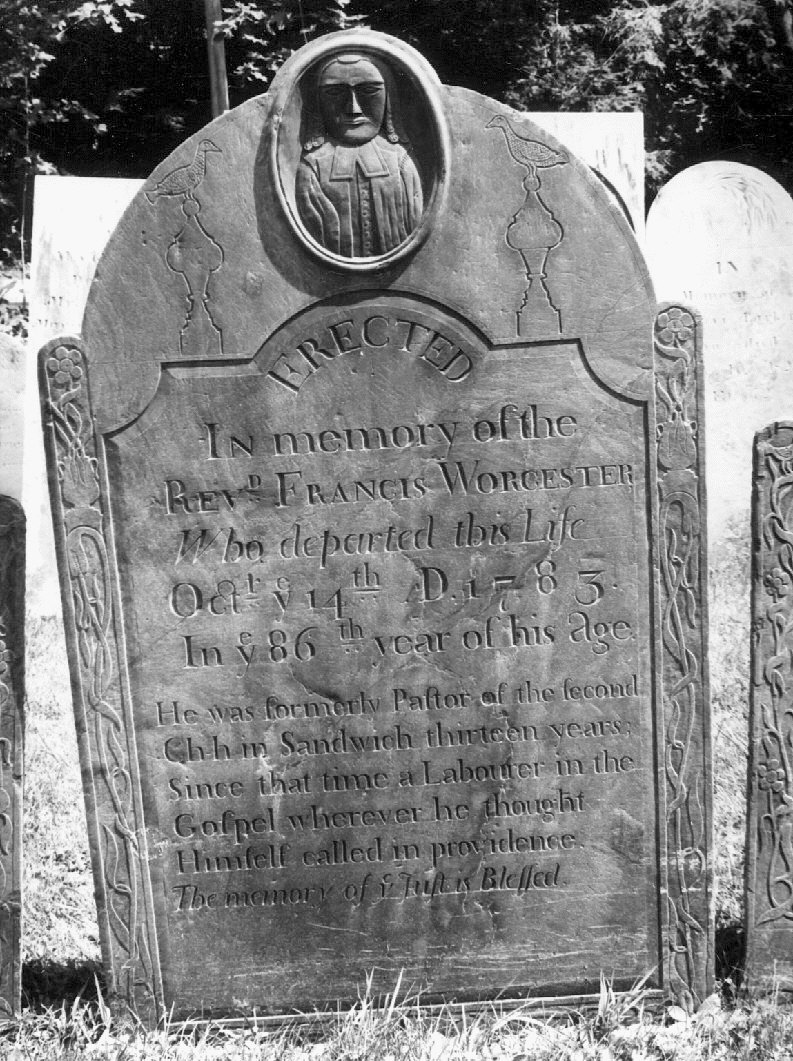 ERECTED
In memory of the
Revᵈ Francis Worcester
Who departed this Life
Octʳ yᵉ 14ᵗʰ A.D. 1783.
In yᵉ 86ᵗʰ year of his age.
He was formerly Paſtor of the ſecond
Chh in Sandwich thirteen years;
Since that time a Labourer in the
Goſpel wherever he thought
Himſelf called in providence.
The memory of yᵉ Juſt is Bleſſed.
IN